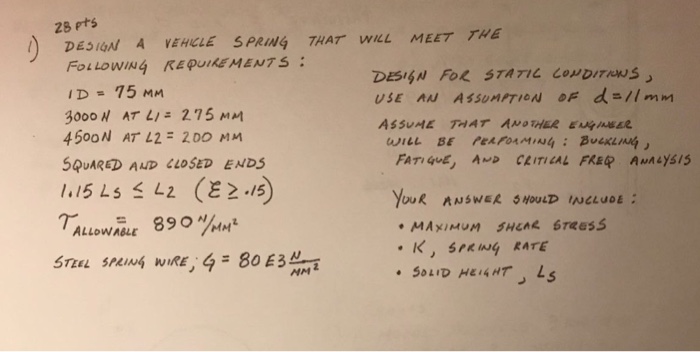 28 pts
1) DESIGN A VEHICLE SPRING THAT WILL MEET THE
FOLLOWING REQUIREMENTS:
ID = 75 MM
3000 N AT L1 = 275 MM
4500N AT L2 = 200 MM
SQUARED AND CLOSED ENDS
1.15 LS ≤ L2 (ξ ≥ .15)
τ ALLOWABLE = 890 N/MM²
STEEL SPRING WIRE, G = 80 E3 N/MM²
DESIGN FOR STATIC CONDITIONS,
USE AN ASSUMPTION OF d = 11 mm
ASSUME THAT ANOTHER ENGINEER
WILL BE PERFORMING: BUCKLING,
FATIGUE, AND CRITICAL FREQ ANALYSIS
YOUR ANSWER SHOULD INCLUDE:
• MAXIMUM SHEAR STRESS
• K, SPRING RATE
• SOLID HEIGHT, LS